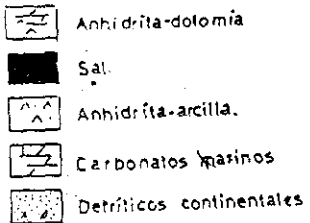 Anhidrita-dolomia
Sal.
Anhidrita-arcilla.
Carbonatos marinos
Detríticos continentales